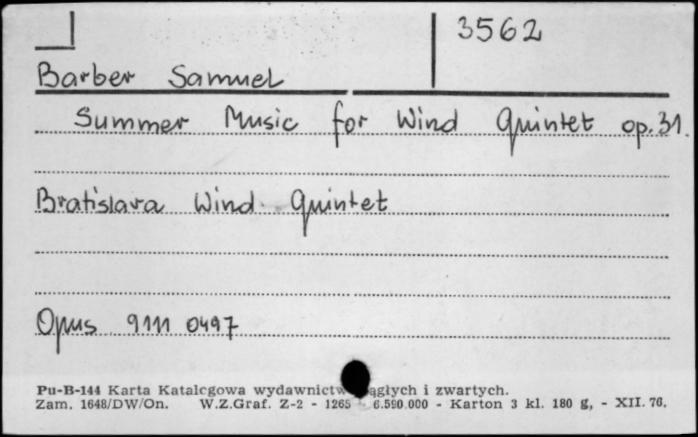 3562
Barber Samuel
Summer Music for Wind Quintet op. 31
Bratislava Wind Quintet
Opus 9111 0497
Pu-B-144 Karta Katalcgowa wydawnictw ągłych i zwartych.
Zam. 1648/DW/On. W.Z.Graf. Z-2 - 1265 6.590.000 - Karton 3 kl. 180 g, - XII. 76.